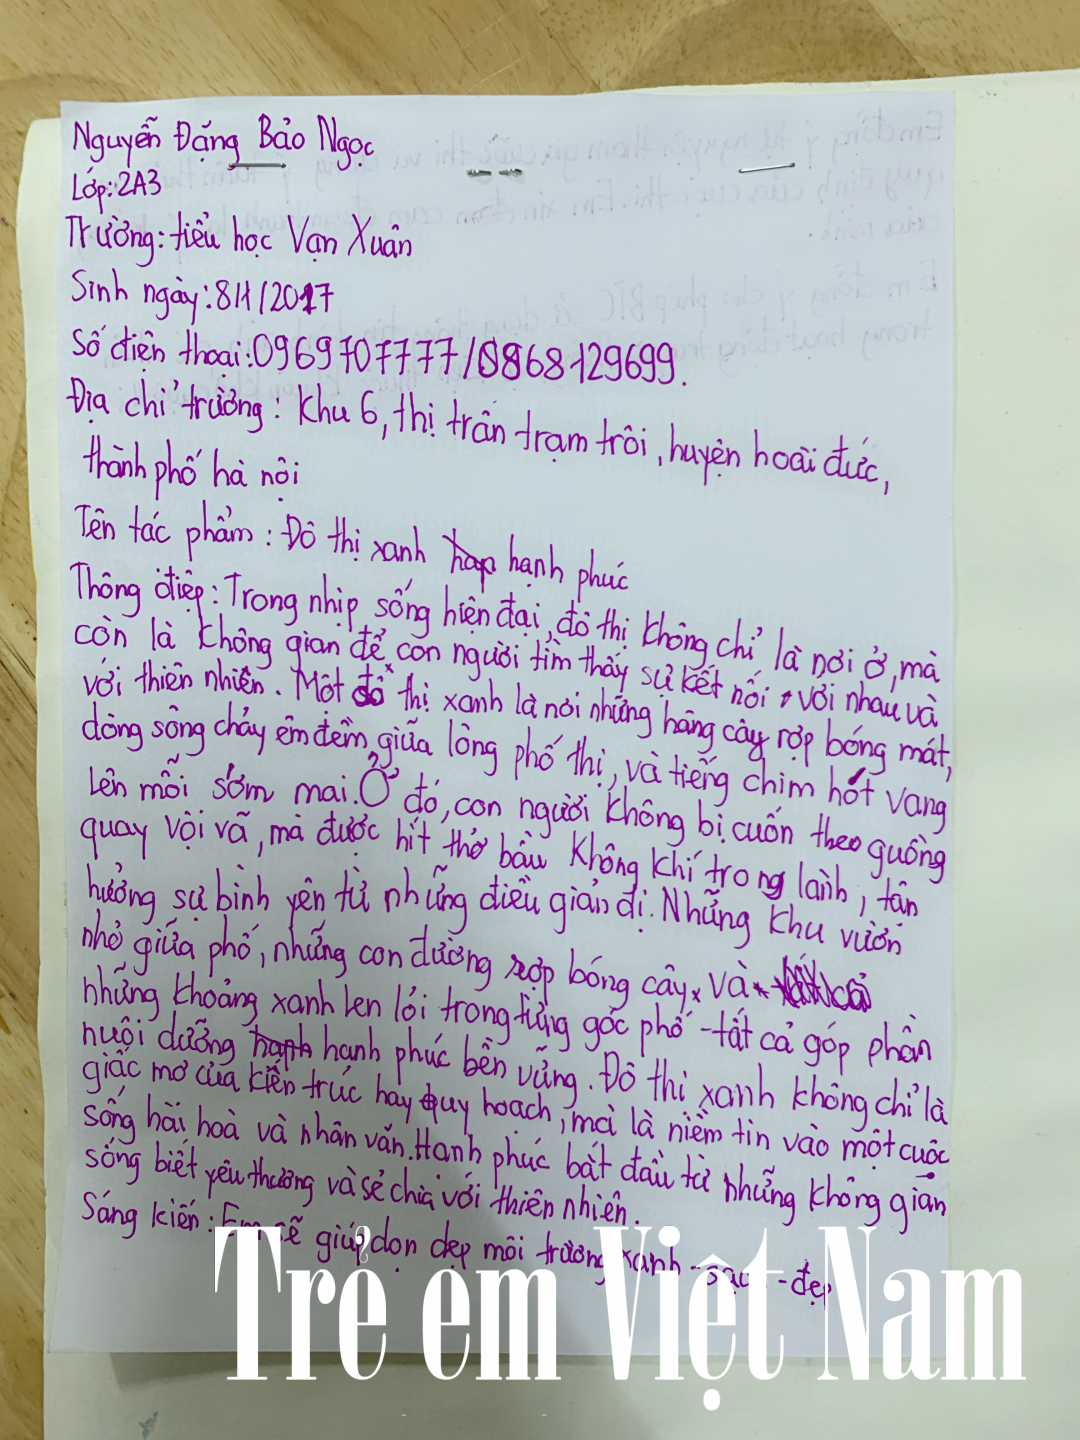 Nguyễn Đặng Bảo Ngọc
Lớp: 2A3
Trường: tiểu học Vạn Xuân
Sinh ngày: 8/1/2017
Số điện thoại: 0969707777/0868129699.
Địa chỉ trường: Khu 6, thị trấn trạm trôi, huyện hoài đức,
thành phố hà nội
Tên tác phẩm: Đô thị xanh hạnh phúc
Thông điệp: Trong nhịp sống hiện đại, đô thị không chỉ là nơi ở, mà
còn là không gian để con người tìm thấy sự kết nối với nhau và
với thiên nhiên. Một đô thị xanh là nơi những hàng cây rợp bóng mát,
dòng sông chảy êm đềm giữa lòng phố thị, và tiếng chim hót vang
lên mỗi sớm mai. Ở đó, con người không bị cuốn theo guồng
quay vội vã, mà được hít thở bầu không khí trong lành, tận
hưởng sự bình yên từ những điều giản dị. Những khu vườn
nhỏ giữa phố, những con đường rợp bóng cây và
những khoảng xanh len lỏi trong từng góc phố - tất cả góp phần
nuôi dưỡng hạnh phúc bền vững. Đô thị xanh không chỉ là
giấc mơ của kiến trúc hay quy hoạch, mà là niềm tin vào một cuộc
sống hài hoà và nhân văn. Hạnh phúc bắt đầu từ những không gian
sống biết yêu thương và sẻ chia với thiên nhiên.
Sáng kiến: Em sẽ giúp dọn dẹp môi trường xanh - sạch - đẹp
Trẻ em Việt Nam